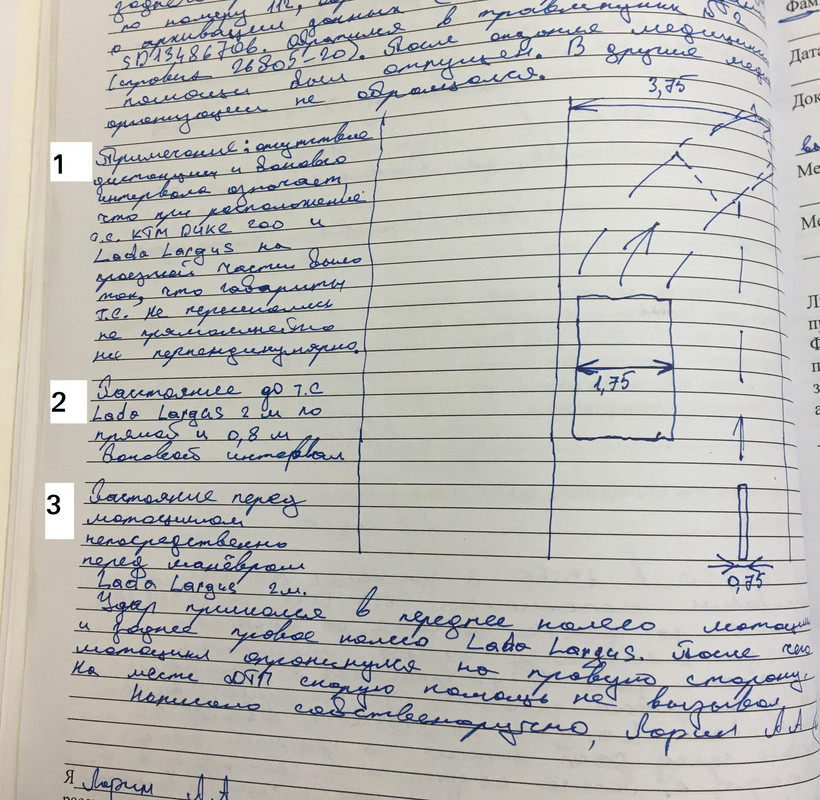 по номеру 112,
о архивации данных
SD13486706. Обратился в травмпункт №2
(справка 26805-20). После оказания медицинской
помощи был отпущен. В другие мед
организации не обращался.
3,75
1
Примечание: отсутствие
дистанции и бокового
интервала означает,
что при расположение
а.с. KTM Duke 200 и
Lada Largus на
проезжей части было
так, что габариты
Т.С. не пересекались
не прямолинейно
не перпендикулярно.
1,75
2
Растояние до Т.С
Lada Largus 2 м по
прямой и 0,8 м
боковой интервал
3
Растояние перед
мотоциклом
непосредственно
перед манёвром
Lada Largus 2м.
0,75
Удар пришелся в переднее колесо мотоцик
и заднее правое колесо Lada Largus. После чего
мотоцикл опрокинулся на правую сторону.
На месте ДТП скорую помощь не вызывал,
Написано собственноручно, Ларин А А
Я Ларин А.А
Фам
Дата
Док
Ме
Ме